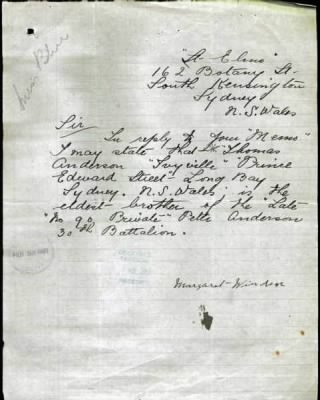 "St Elmo"
162 Botany St
South Kensington
Sydney
N.S. Wales
Sir
In reply to your "Memo"
I may state that Mr Thomas
Anderson "Fayville" Prince
Edward Street Long Bay
Sydney. N.S. Wales is the
eldest brother of the "Late"
"No 90 Private" Peter Anderson
30th Battalion.
Margaret Winsor